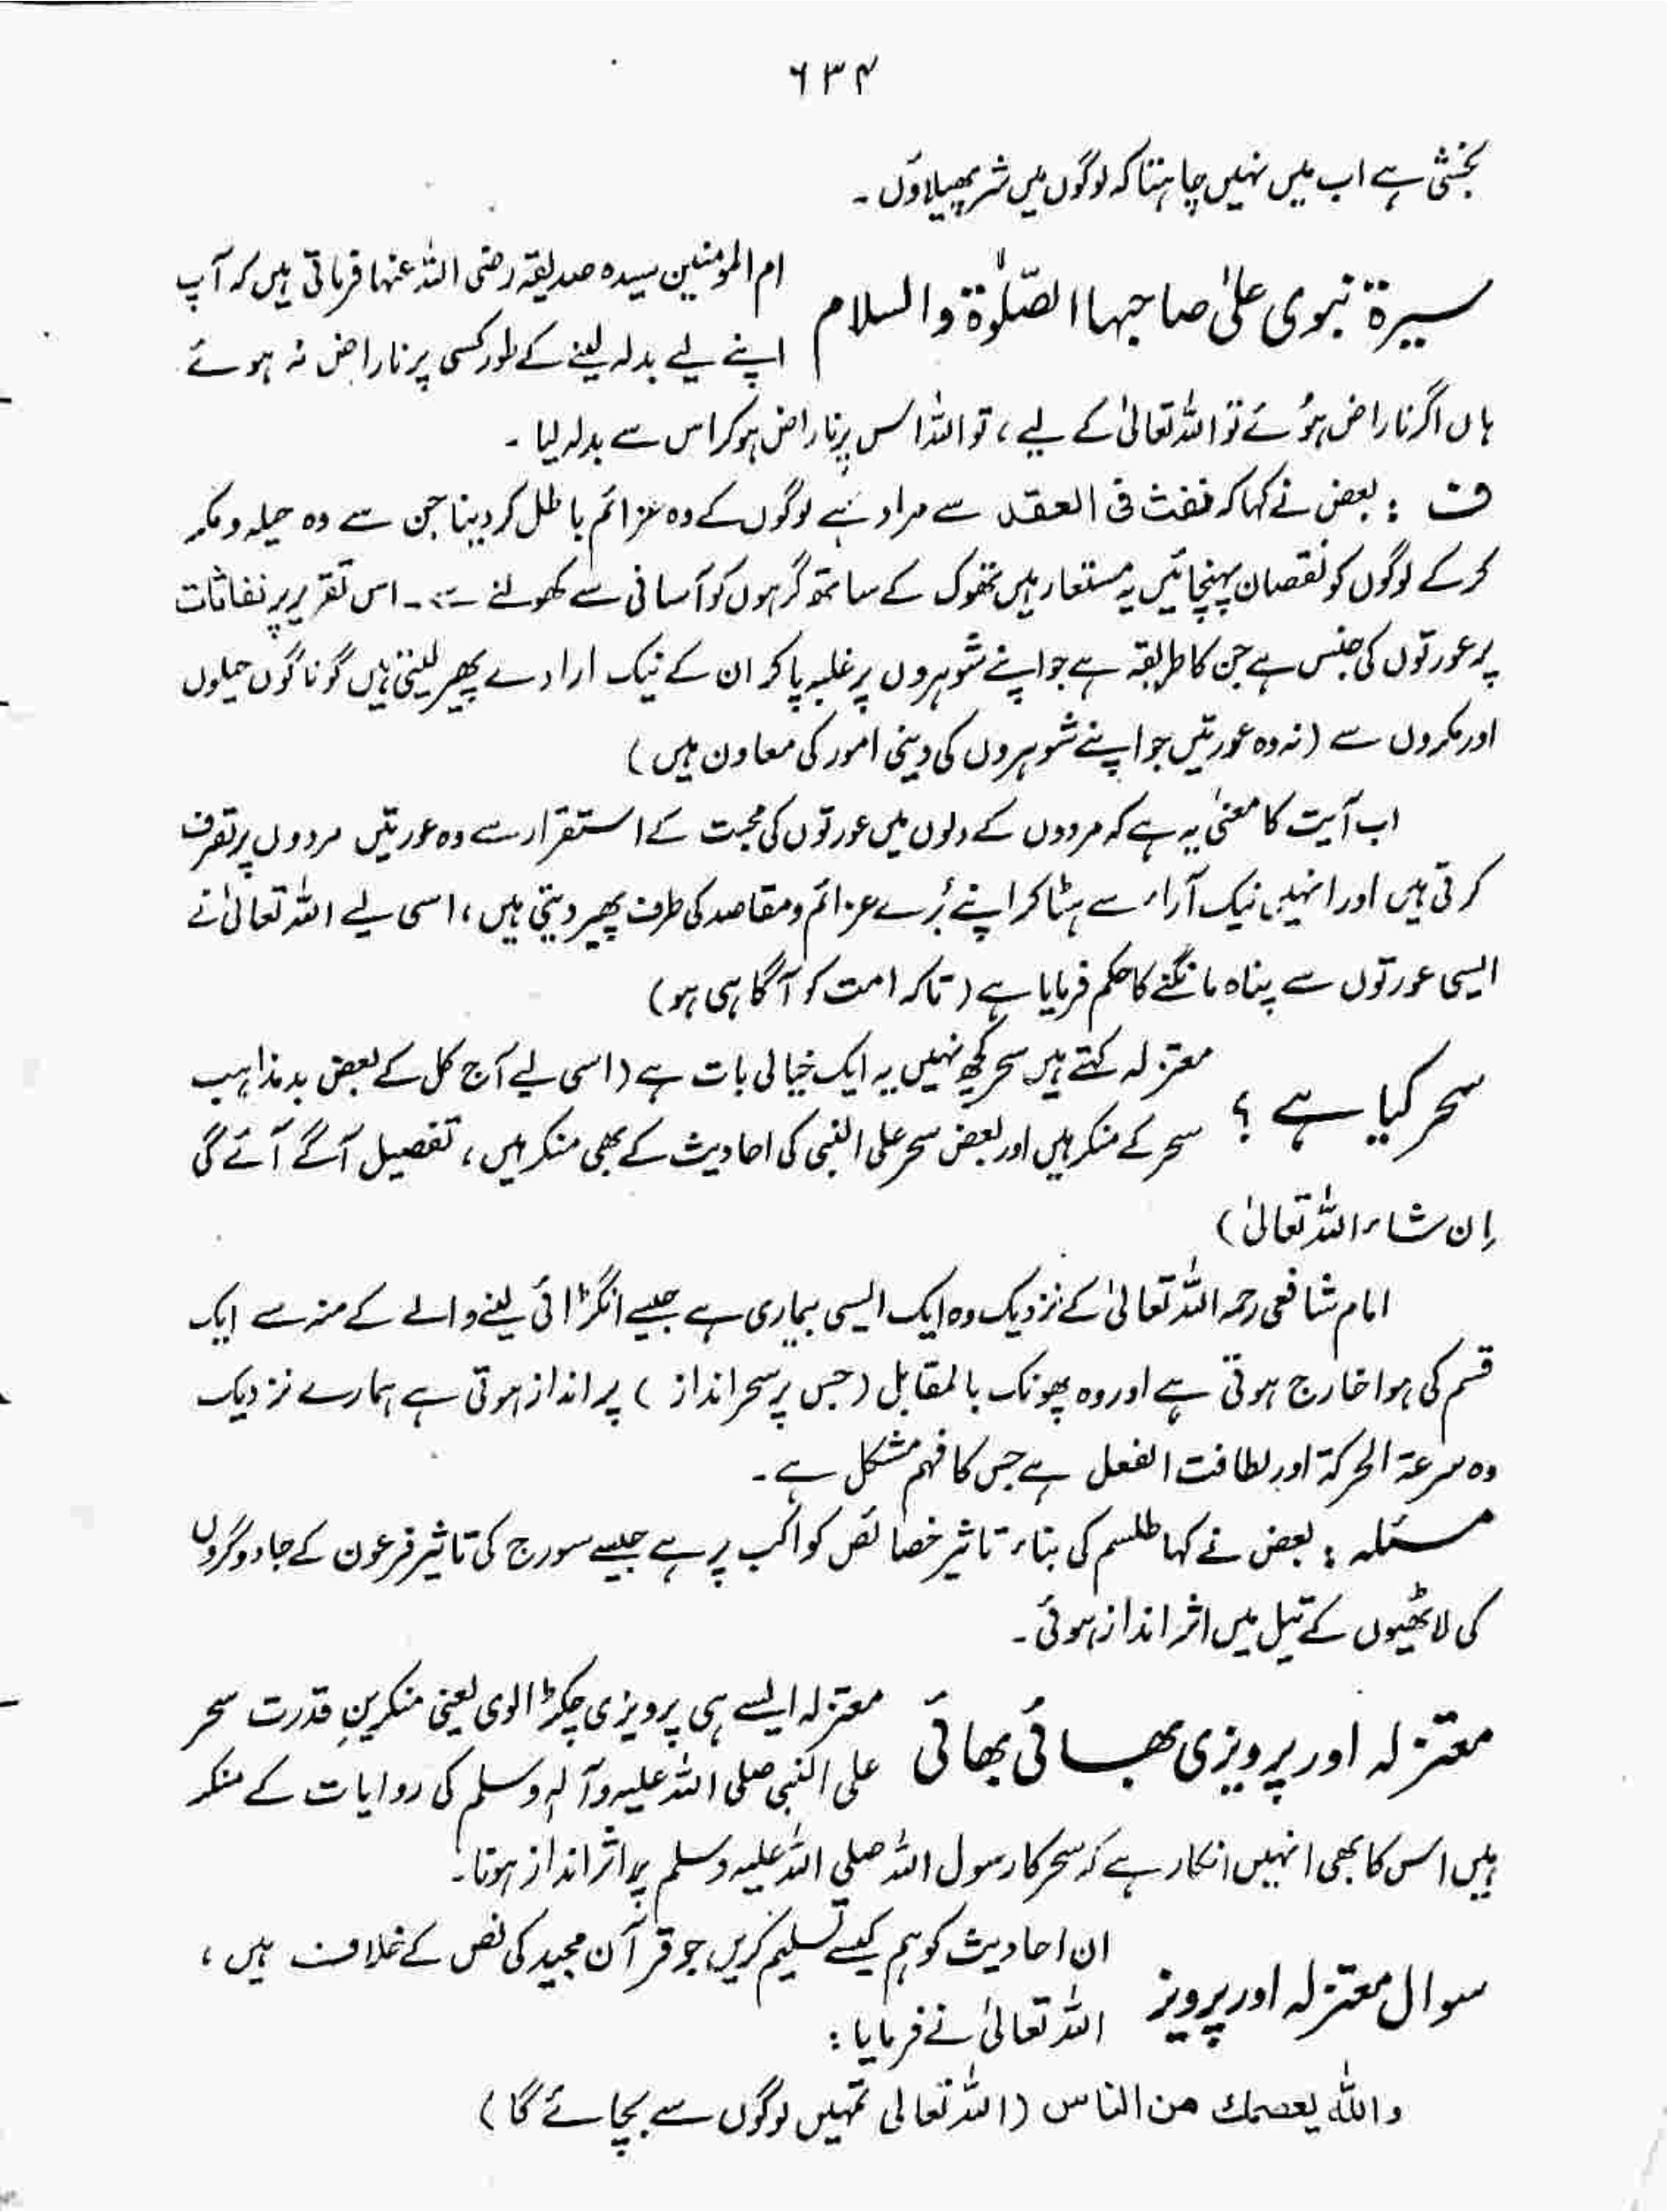 ۶۳۴
بخشی ہے اب میں نہیں چاہتا کہ لوگوں میں شر پھیلاؤں ۔
سیرۃ نبوی علیٰ صاحبہا الصّلوٰۃ والسلام
ام المؤمنین سیدہ صدیقہ رضی اللہ عنہا فرماتی ہیں کہ آپ
اپنے لیے بدلہ لینے کے طور کسی پر ناراض نہ ہوئے
ہاں اگر ناراض ہوئے تو اللہ تعالیٰ کے لیے ، تو اللہ اس پر ناراض ہو کر اس سے بدلہ لیا ۔
ف : بعض نے کہا کہ نفث فی العقد سے مراد ہے لوگوں کے وہ عزائم باطل کر دینا جن سے وہ حیلہ و مکر
کر کے لوگوں کو نقصان پہنچائیں یہ مستعار ہیں تھوک کے ساتھ گرہوں کو آسانی سے کھولنے سے ۔ اس تقریر پر نفاثات
پر عورتوں کی جنس ہے جن کا طریقہ ہے جو اپنے شوہروں پر غلبہ پا کر ان کے نیک ارادے پھیر لیتی ہیں گوناگوں حیلوں
اور مکروں سے (نہ وہ عورتیں جو اپنے شوہروں کی دینی امور کی معاون ہیں)
اب آیت کا معنیٰ یہ ہے کہ مردوں کے دلوں میں عورتوں کی محبت کے استقرار سے وہ عورتیں مردوں پر تصرف
کرتی ہیں اور انہیں نیک آراء سے ہٹا کر اپنے بُرے عزائم و مقاصد کی طرف پھیر دیتی ہیں ، اسی لیے اللہ تعالیٰ نے
ایسی عورتوں سے پناہ مانگنے کا حکم فرمایا ہے (تاکہ امت کو آگاہی ہو)
سحر کیا ہے ؟
معتزلہ کہتے ہیں سحر کچھ نہیں یہ ایک خیالی بات ہے (اسی لیے آج کل کے بعض بد مذاہب
سحر کے منکر ہیں اور بعض سحر علی النبی کی احادیث کے بھی منکر ہیں ، تفصیل آگے آئے گی
اِن شاء اللہ تعالیٰ)
امام شافعی رحمہ اللہ تعالیٰ کے نزدیک وہ ایک ایسی بیماری ہے جیسے انگڑائی لینے والے کے منہ سے ایک
قسم کی ہوا خارج ہوتی ہے اور وہ پھونک بالمقابل (جس پر سحر انداز) پر انداز ہوتی ہے ہمارے نزدیک
وہ سرعۃ الحرکۃ اور لطافت الفعل ہے جس کا فہم مشکل ہے ۔
مسئلہ : بعض نے کہا طلسم کی بناء تاثیر خصائص کواکب پر ہے جیسے سورج کی تاثیر فرعون کے جادوگروں
کی لاٹھیوں کے تیل میں اثر انداز ہوئی ۔
معتزلہ اور پرویزی بھائی بھائی
معتزلہ ایسے ہی پرویزی چکڑالوی یعنی منکرینِ قدرت سحر
علی النبی صلی اللہ علیہ وآلہٖ وسلم کی روایات کے منکر
ہیں اس کا بھی انہیں انکار ہے کہ سحر کا رسول اللہ صلی اللہ علیہ وسلم پر اثر انداز ہونا ۔
سوال معتزلہ اور پرویز
ان احادیث کو ہم کیسے تسلیم کریں جو قرآن مجید کی نص کے خلاف ہیں ،
اللہ تعالیٰ نے فرمایا :
واللہ یعصمک من الناس (اللہ تعالی تمہیں لوگوں سے بچائے گا)